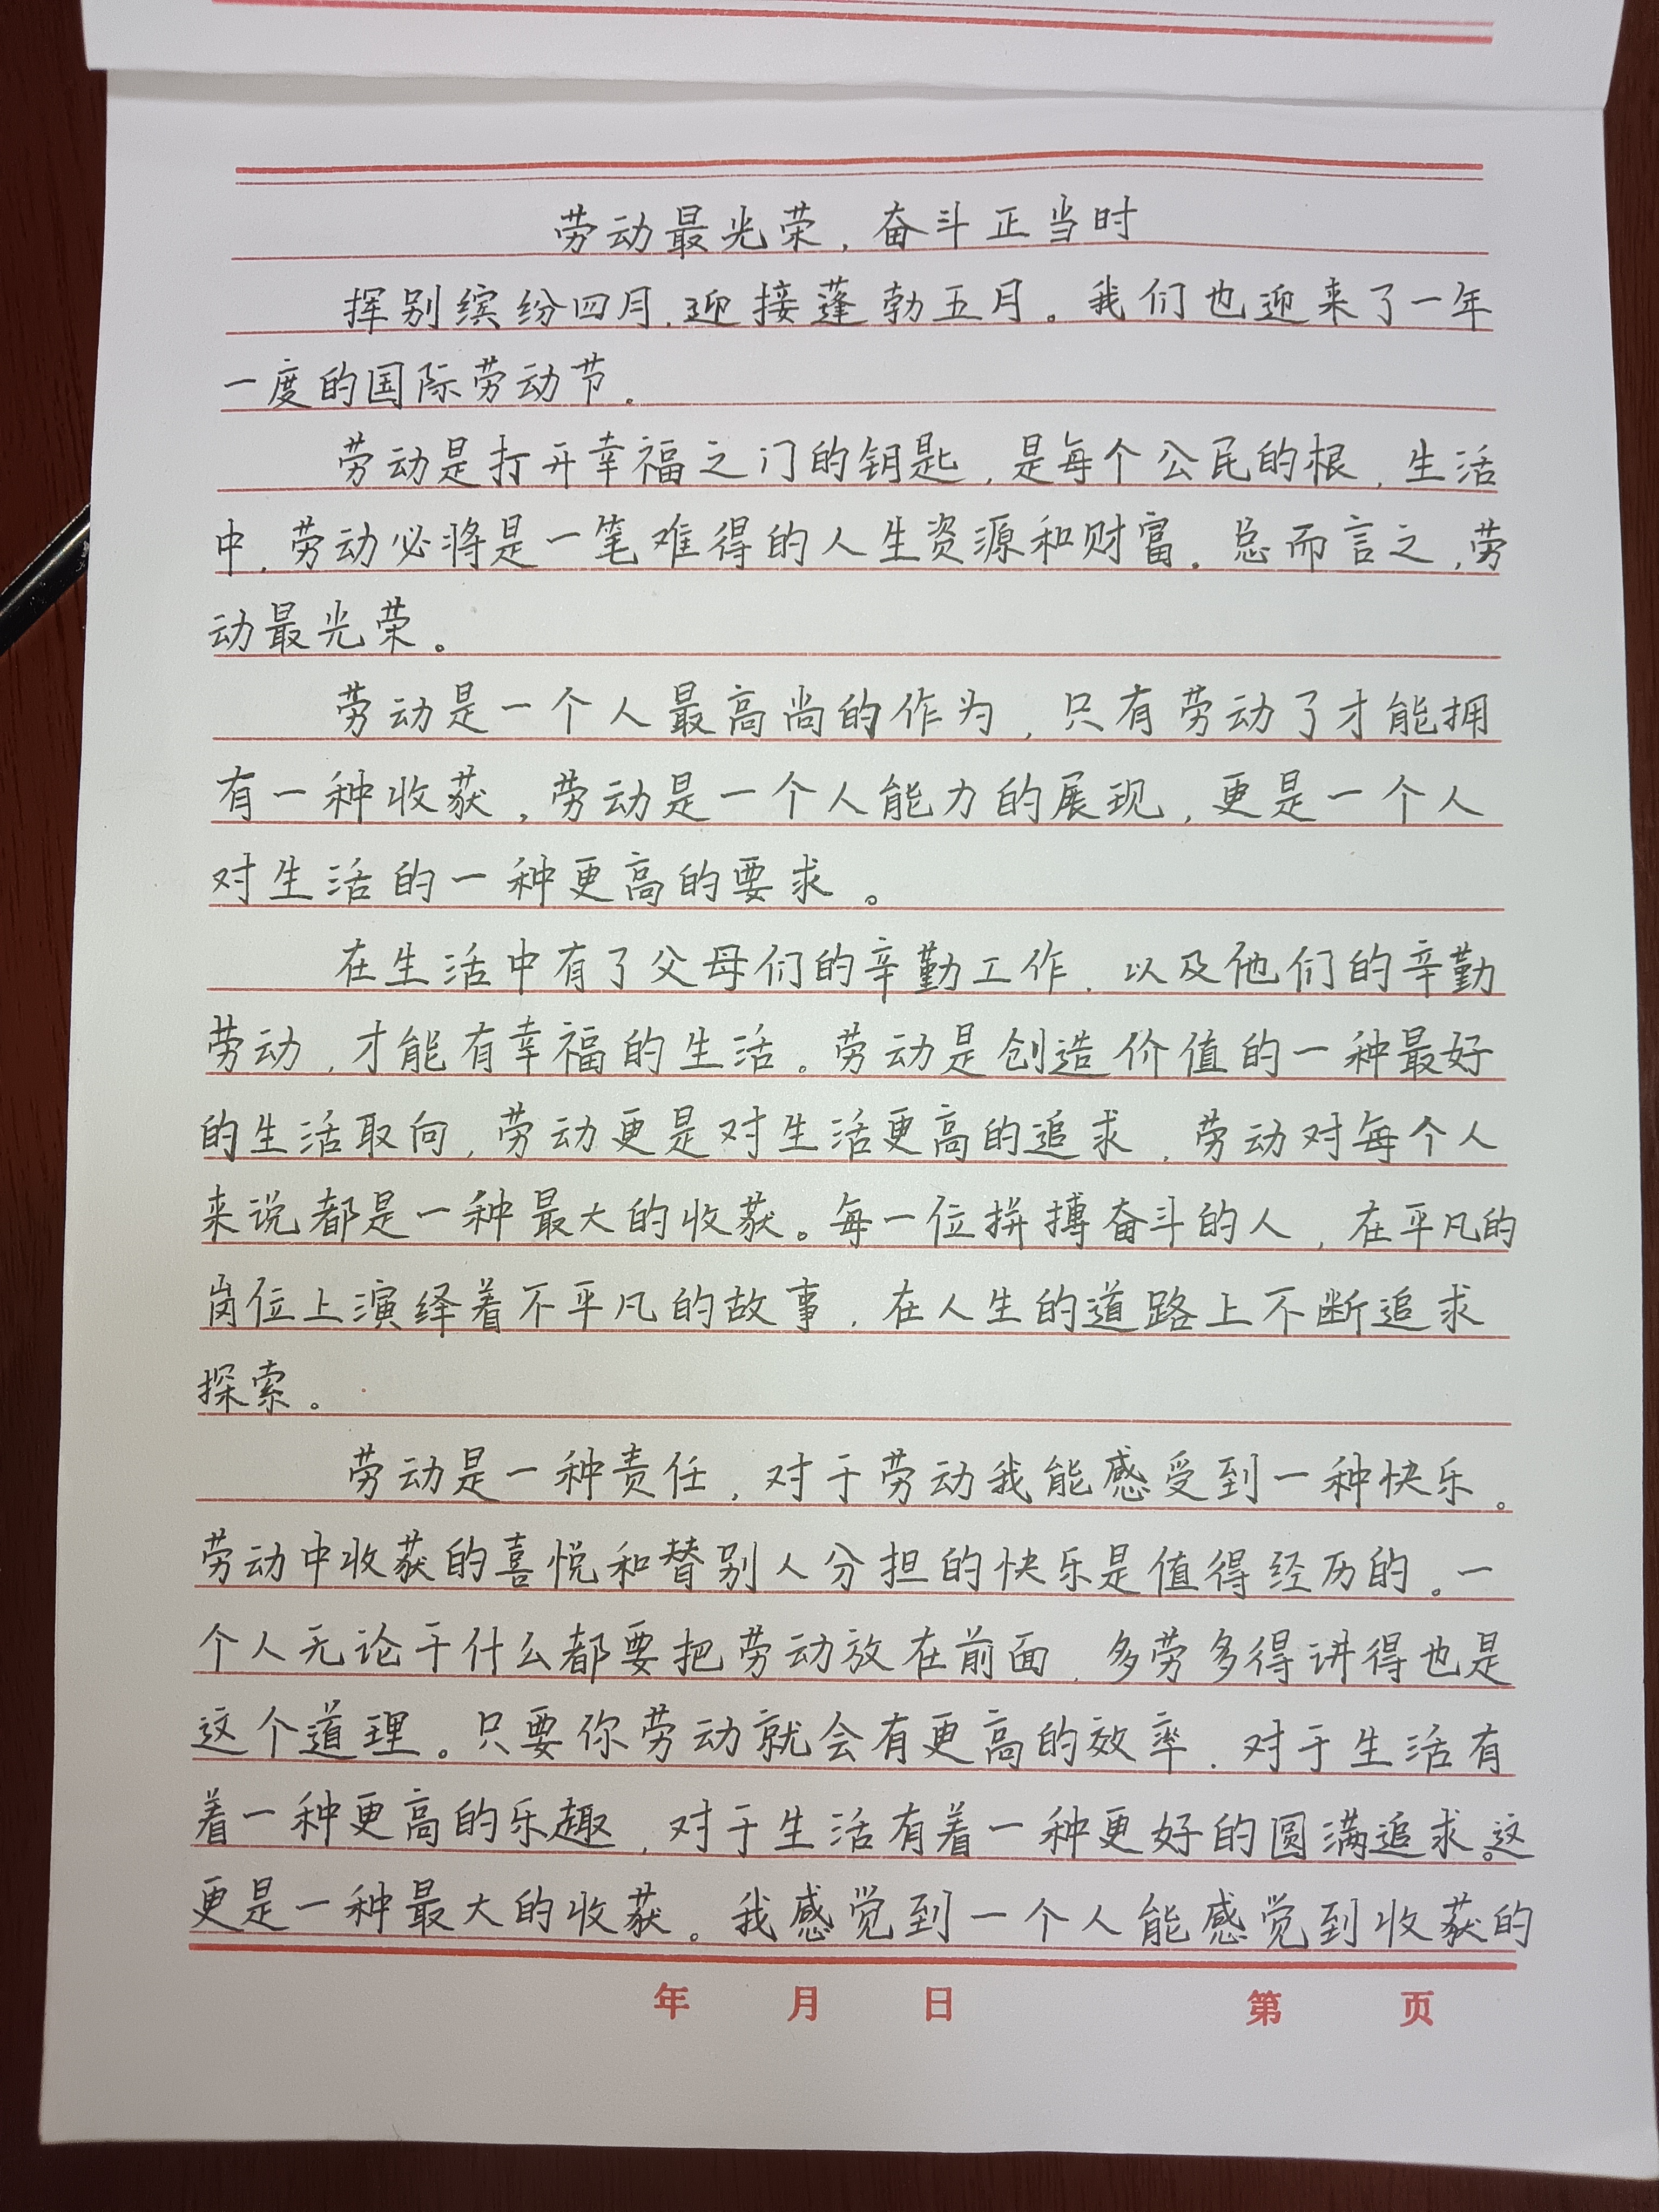 劳动最光荣，奋斗正当时
挥别缤纷四月，迎接蓬勃五月。我们也迎来了一年
一度的国际劳动节。
劳动是打开幸福之门的钥匙，是每个公民的根，生活
中，劳动必将是一笔难得的人生资源和财富。总而言之，劳
动最光荣。
劳动是一个人最高尚的作为，只有劳动了才能拥
有一种收获，劳动是一个人能力的展现，更是一个人
对生活的一种更高的要求。
在生活中有了父母们的辛勤工作，以及他们的辛勤
劳动，才能有幸福的生活。劳动是创造价值的一种最好
的生活取向，劳动更是对生活更高的追求，劳动对每个人
来说都是一种最大的收获。每一位拼搏奋斗的人，在平凡的
岗位上演绎着不平凡的故事，在人生的道路上不断追求
探索。
劳动是一种责任，对于劳动我能感受到一种快乐。
劳动中收获的喜悦和替别人分担的快乐是值得经历的。一
个人无论干什么都要把劳动放在前面，多劳多得讲得也是
这个道理。只要你劳动就会有更高的效率，对于生活有
着一种更高的乐趣，对于生活有着一种更好的圆满追求。这
更是一种最大的收获。我感觉到一个人能感觉到收获的
年 月 日 第 页